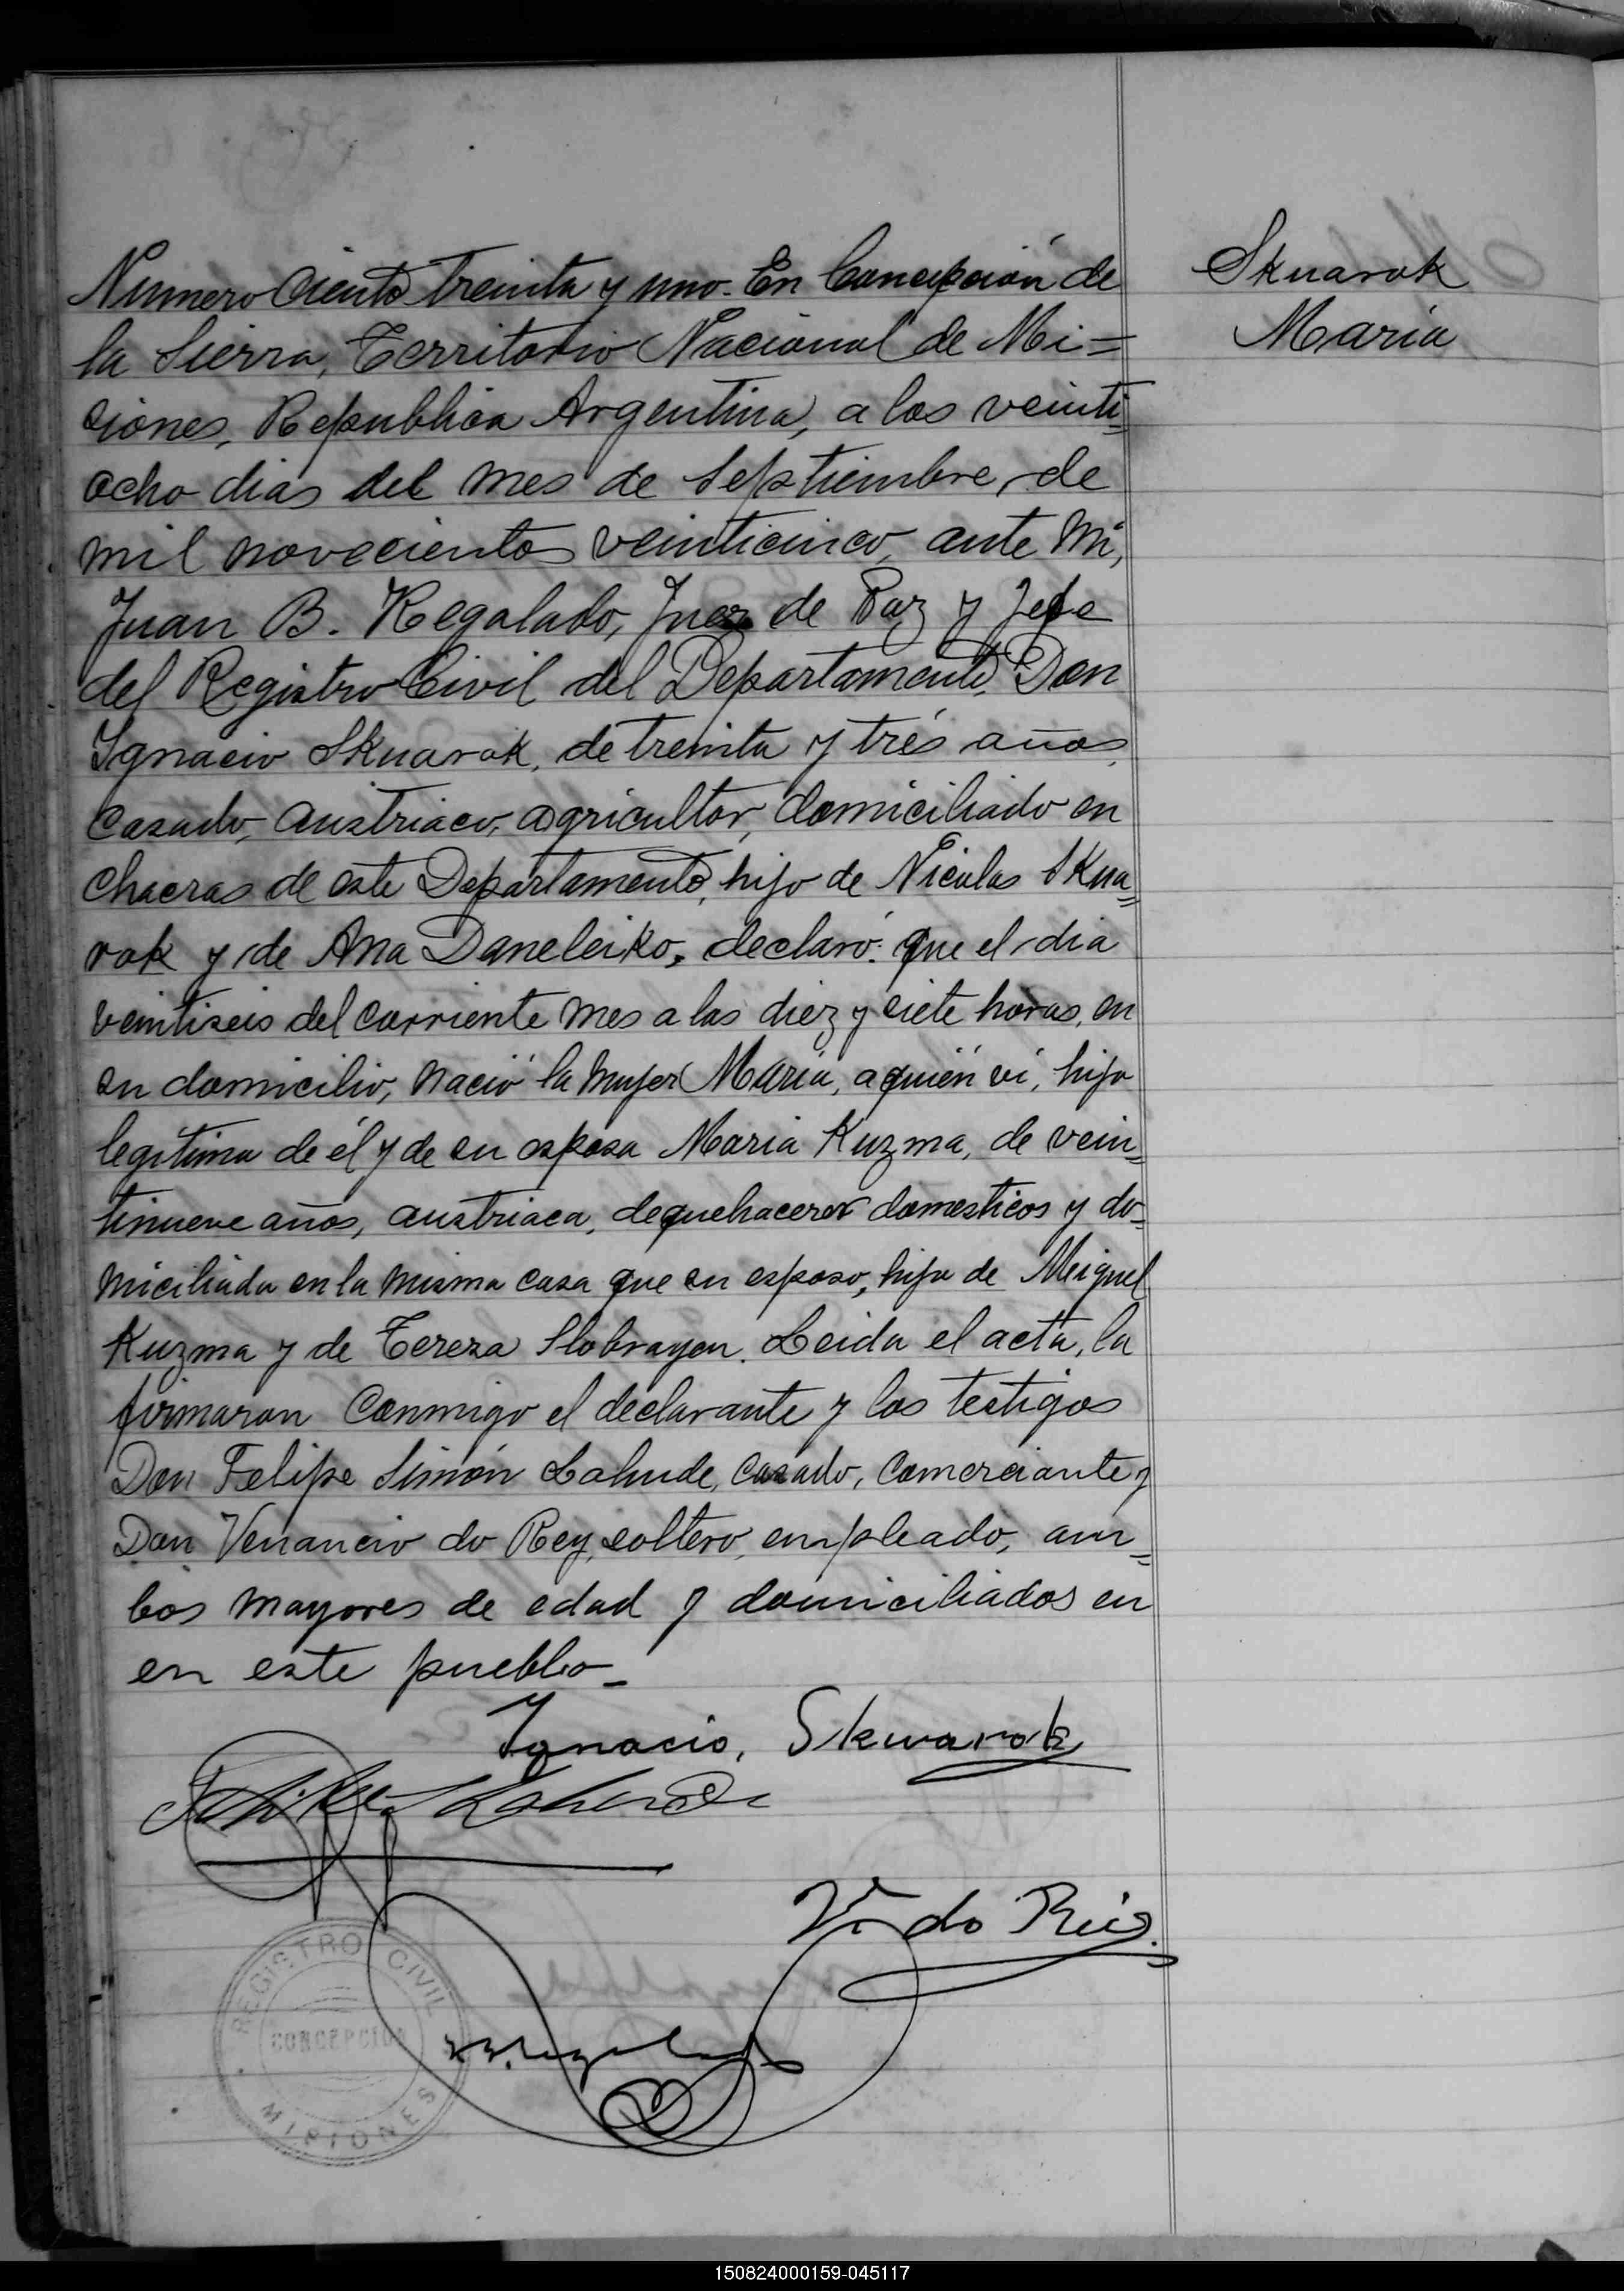 Skuarok
Maria
Numero Ciento treinta y uno. En Concepción de
la Sierra, Territorio Nacional de Mi=
siones, Republica Argentina, a los veinti=
ocho dias del mes de Septiembre, de
mil novecientos veinticinco, ante mi,
Juan B. Regalado, Juez de Paz y Jefe
del Registro Civil del Departamento, Don
Ignacio Skuarok, de treinta y trés años,
casado, austriaco, agricultor, domiciliado en
chacras de este Departamento, hijo de Nicolas Skua=
rok y de Ana Daneleiko, declaró: que el dia
veintiseis del corriente mes a las diez y siete horas, en
su domicilio, nació la mujer Maria, a quién vi, hija
legitima de él y de su esposa Maria Kuzma, de vein=
tinueve años, austriaca, de quehaceres domesticos y do=
miciliada en la misma casa que su esposo, hija de Miguel
Kuzma y de Tereza Slobrayen. Leida el acta, la
firmaron conmigo el declarante y los testigos
Don Felipe Simón Lahude, casado, comerciante y
Don Venancio do Rey, soltero, empleado, am=
bos mayores de edad y domiciliados en
en este pueblo_
Ignacio, Skwarok
V. do Reis.
REGISTRO CIVIL
CONCEPCION
MISIONES
150824000159-045117